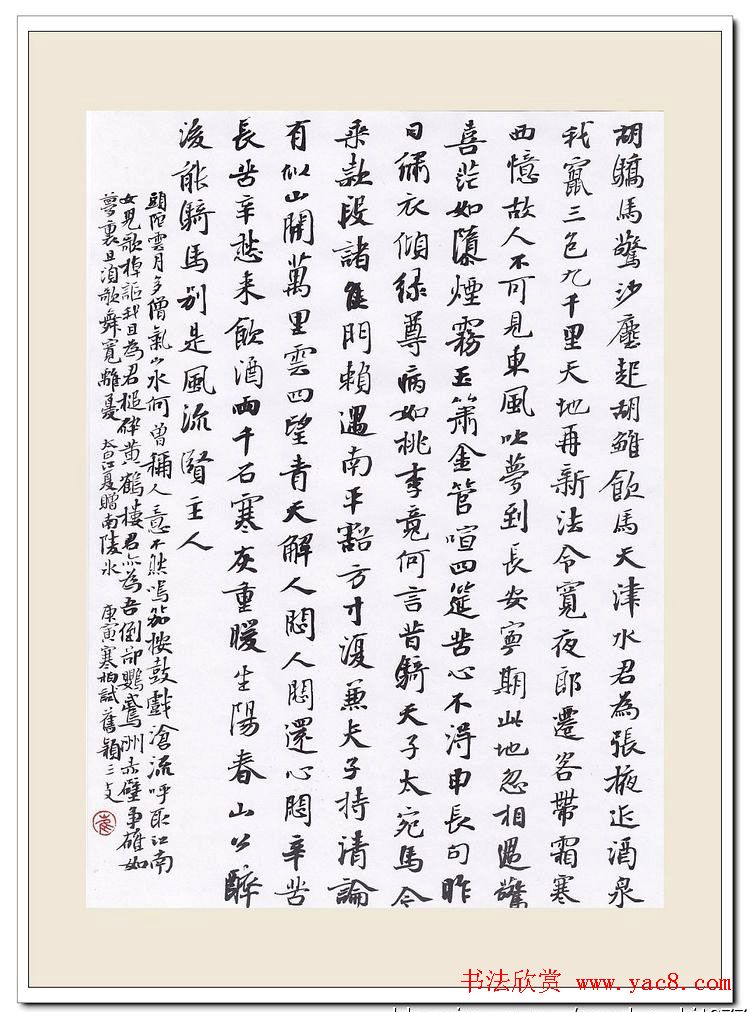 胡驕馬驚沙塵起胡雛飲馬天津水君為張掖近酒泉
我竄三巴九千里天地再新法令寬夜郎遷客帶霜寒
西憶故人不可見東風吹夢到長安寧期此地忽相遇驚
喜茫如墮煙霧玉簫金管喧四筵苦心不得申長句昨
日繡衣傾綠尊病如桃李竟何言昔騎天子大宛馬今
乘款段諸侯門賴遇南平豁方寸復兼夫子持清論
有似山開萬里雲四望青天解人悶人悶還心悶辛苦
長苦辛愁來飲酒兩千石寒灰重暖生陽春山公醉
後能騎馬別是風流賢主人
頭陀雲月多僧氣山水何曾稱人意不然鳴笳按鼓戲滄流呼取江南
女兒歌棹謳我且為君槌碎黃鶴樓君亦為吾倒卻鸚鵡洲赤壁爭雄如
夢裏且須歌舞寬離憂 太白江夏贈南陵冰 庚寅寒柏試舊穎三
书法欣赏 www.yac8.com